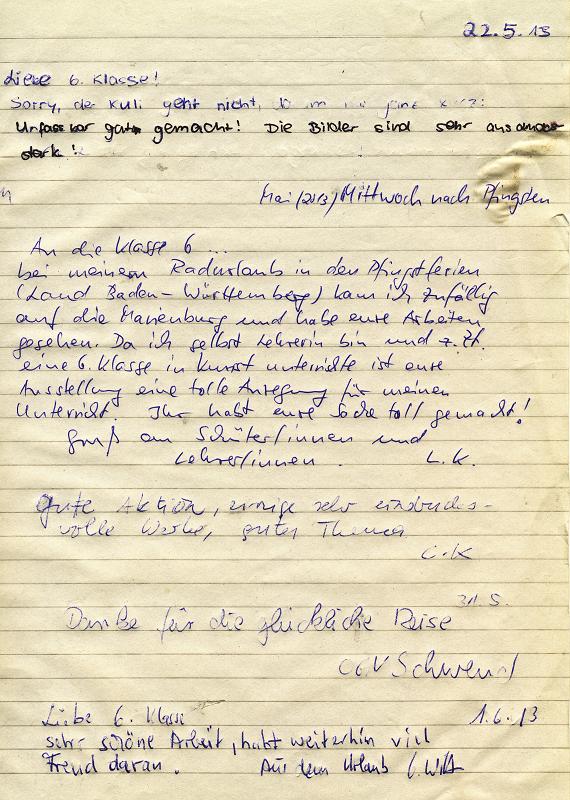 22.5.13
Liebe 6. Klasse!
Sorry, der Kuli geht nicht,
Unfassbar gut gemacht! Die Bilder sind sehr
stark!
Mai (2013) Mittwoch nach Pfingsten
An die Klasse 6 ...
bei meinem Radurlaub in den Pfingstferien
(Land Baden-Württemberg) kam ich zufällig
auf die Marienburg und habe eure Arbeiten
gesehen. Da ich selbst Lehrerin bin und z.Zt.
eine 6. Klasse in Kunst unterrichte ist eure
Ausstellung eine tolle Anregung für meinen
Unterricht. Ihr habt eure Sache toll gemacht!
Gruß an Schüler/innen und
Lehrer/innen. L.K.
Gute Aktion, einige sehr eindrucks-
volle Werke, gutes Thema
C.K
31.5.
Danke für die glückliche Reise
OGV Schwend
Liebe 6. Klasse 1.6.13
sehr schöne Arbeit, habt weiterhin viel
Freud daran. Aus dem Urlaub